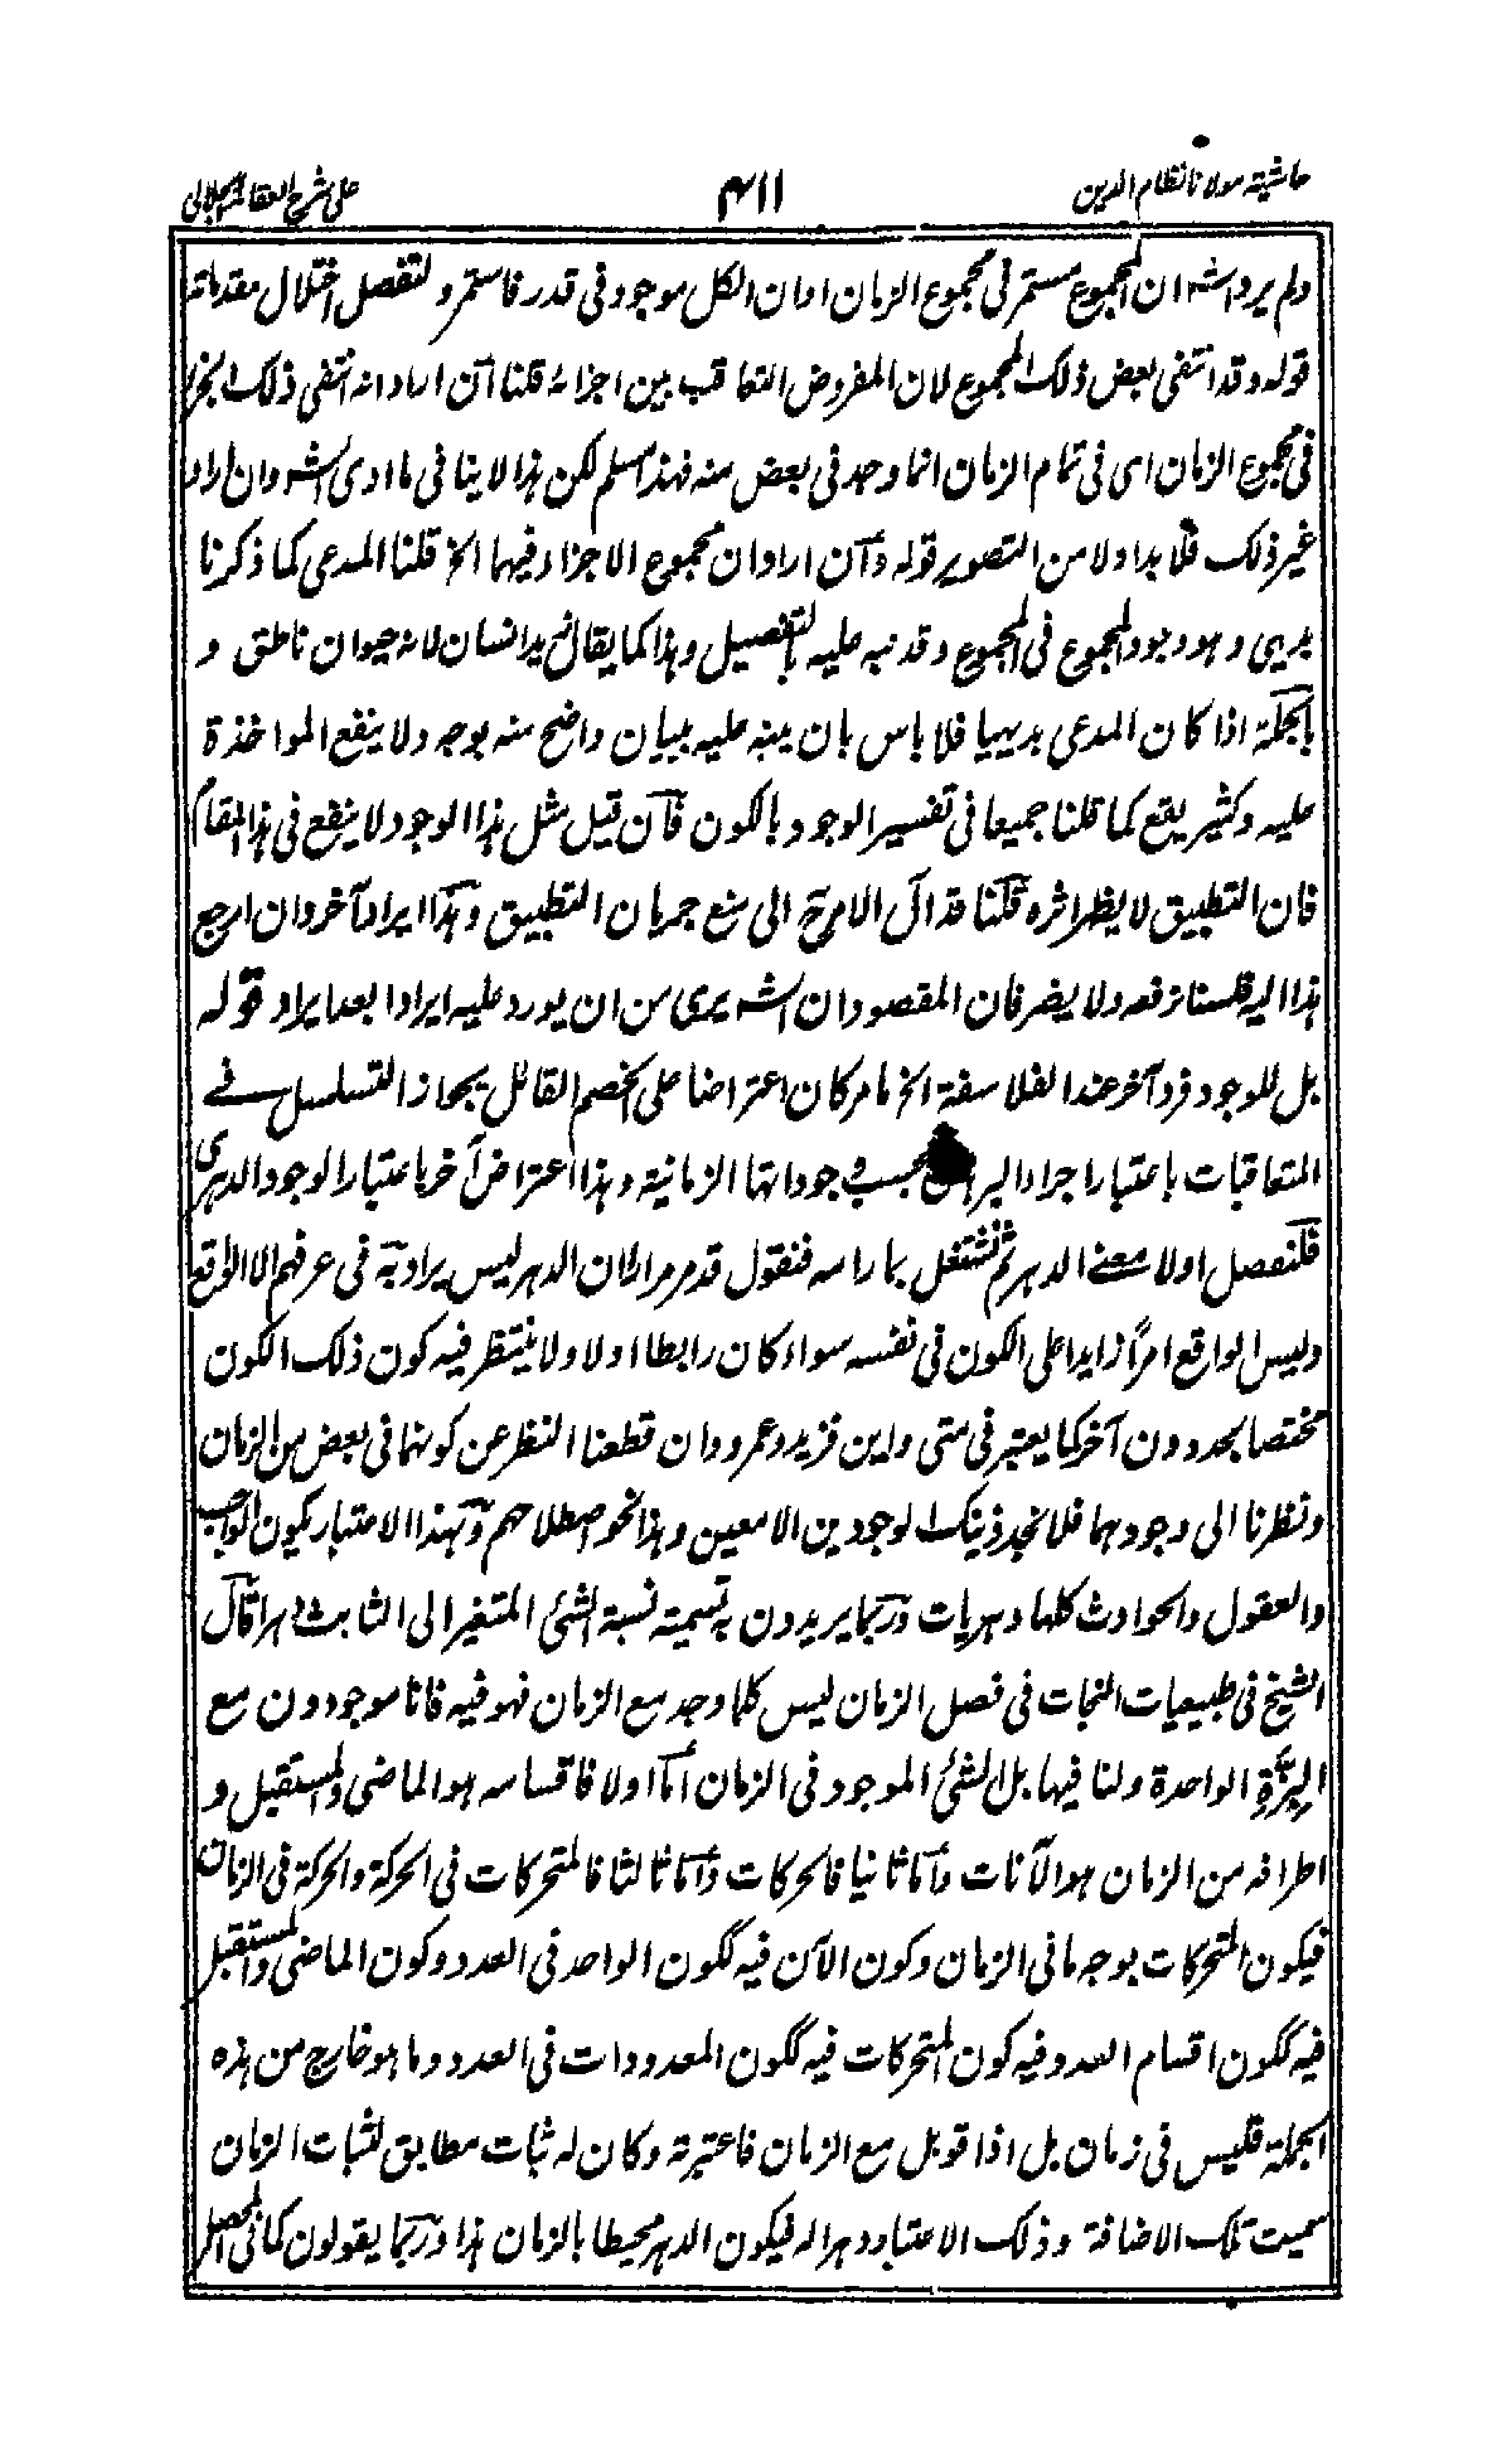 حاشیة مولانا نظام الدین
۱۱۴
علی شرح العقائد الجلالی
ولم یرد الشہ ان المجموع مستمر فی مجموع الزمان او ان الکل موجود فی قدر فاستمر و لتفصل اختلال مقدماتہ
قولہ وقد انتفی بعض ذلک المجموع لان المفروض التعاقب بین اجزائہ قلنا ان اراد انہ انتفی ذلک الجزء
فی مجموع الزمان ای فی تمام الزمان انما وجد فی بعض منہ فہذا مسلم لکن ہذا لا ینافی ما ادی الشہ وان اراد
غیر ذلک فلا بد اولا من التصویر قولہ وان اراد ان مجموع الاجزاء فیہما الخ قلنا المدعی کما ذکرنا
بدیہی وہو وجود المجموع فی المجموع وقد نبہ علیہ بالتفصیل وہذا کما یقال زید انسان لانہ حیوان ناطق و
بالجملۃ اذا کان المدعی بدیہیا فلا باس بان ینبہ علیہ ببیان واضح منہ بوجہ ولا ینفع المواخذۃ
علیہ وکثیر یقع کما قلنا جمیعا فی تفسیر الوجود بالکون فان قیل مثل ہذا الوجود لا ینفع فی ہذا المقام
فان التطبیق لا یظہر اثرہ قلنا قد آل الامر ح الی منع جریان التطبیق وہذا ایراد آخر وان ارجع
ہذا الیہ فلسنا نرفعہ ولا یضر فان المقصود ان الشہ بری من ان یورد علیہ ایرادا بعد ایراد قولہ
بل للوجود فرد آخر عند الفلاسفۃ الخ ما مر کان اعتراضا علی الخصم القائل بجواز التسلسل فے
المتعاقبات باعتبار اجراء البراہین بحسب وجوداتہا الزمانیۃ وہذا اعتراض آخر باعتبار الوجود الدہری
فلنفصل اولا معنے الدہر ثم نشتغل بما رامہ فنقول قد مر مرارا ان الدہر لیس یراد بہ فی عرفہم الا الواقع
ولیس الواقع امرًا زایدا علی الکون فی نفسہ سواء کان رابطا اولا ولا ینتظر فیہ کون ذلک الکون
مختصا بحد دون آخر کما یعتبر فی متی واین فزید وعمرو وان قطعنا النظر عن کونہما فی بعض من الزمان
ونظرنا الی وجودہما فلا نجد ذینک الوجودین الا معین وہذا نحو اصطلاحہم وبہذا الاعتبار یکون الواجب
والعقول والحوادث کلہا دہریات وربما یریدون بہ تسمیۃ نسبۃ الشئ المتغیر الی الثابت دہرا قال
الشیخ فی طبیعیات النجات فی فصل الزمان لیس کلما وجد مع الزمان فہو فیہ فانا موجودون مع
البرۃ الواحدۃ ولسنا فیہا بل الشئ الموجود فی الزمان اما اولا فاقسامہ ہو الماضی والمستقبل و
اطرافہ من الزمان ہو الآنات واما ثانیا فالحرکات واما ثالثا فالمتحرکات فی الحرکۃ والحرکۃ فی الزمان
فیکون المتحرکات بوجہ ما فی الزمان وکون الآن فیہ ککون الواحد فی العدد وکون الماضی والمستقبل
فیہ ککون اقسام العدد فیہ کون المتحرکات فیہ ککون المعدودات فی العدد وما ہو خارج من ہذہ
الجملۃ فلیس فی زمان بل اذا قوبل مع الزمان فاعتبر بہ وکان لہ ثبات مطابق لثبات الزمان
سمیت تلک الاضافۃ وذلک الاعتبار دہرا لہ فیکون الدہر محیطا بالزمان ہذا وربما یقولون کما فی المحصل